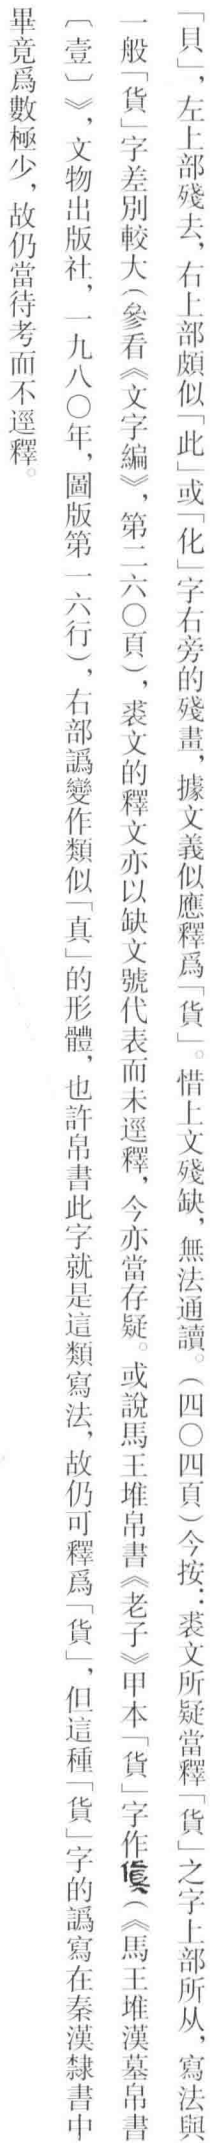 「貝」，左上部殘去，右上部頗似「此」或「化」字右旁的殘畫，據文義似應釋爲「貨」。惜上文殘缺，無法通讀。（四〇四頁）今按：裘文所疑當釋「貨」之字上部所从，寫法與
一般「貨」字差別較大（參看《文字編》，第二六〇頁），裘文的釋文亦以缺文號代表而未逕釋，今亦當存疑。或說馬王堆帛書《老子》甲本「貨」字作（《馬王堆漢墓帛書
〔壹〕》，文物出版社，一九八〇年，圖版第一六行），右部譌變作類似「真」的形體，也許帛書此字就是這類寫法，故仍可釋爲「貨」，但這種「貨」字的譌寫在秦漢隸書中
畢竟爲數極少，故仍當待考而不逕釋。